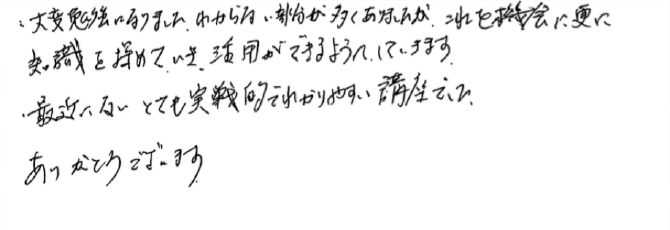 ・大変勉強になりました。わからない部分が多くありましたが、これを機会に更に
知識を深めていき、活用ができるようにしていきます。
・最近にないとても実戦的でわかりやすい講座でした。
ありがとうございます。